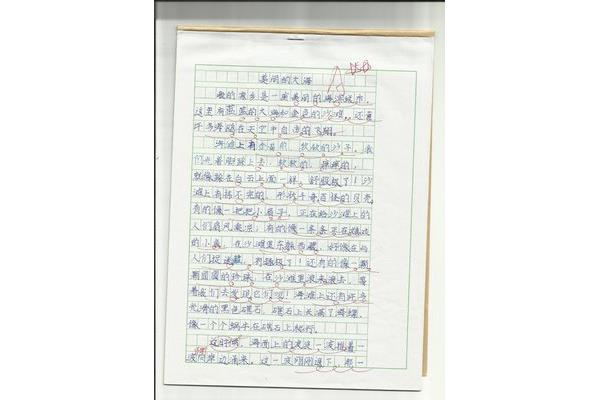 美丽的大海
我的家乡是一座美丽的海滨城市，
这里有蓝蓝的大海和金色的沙滩，还有
许多海鸥在天空中自由的飞翔。
海滩上有金黄的、软软的沙子，我
们光着脚踩上去，软软的、绵绵的，
就像踩在白云上面一样，舒服极了！沙
滩上有捡不完的、形状千奇百怪的贝壳，
有的像一把把小扇子，正在给沙滩上的
人们扇风乘凉；有的像一条条
的小鱼，在沙滩里东躲西藏，好像在与
人们捉迷藏，有趣极了！还有的像一颗
颗圆圆的珍珠，在沙滩里滚来滚去，等
着我们去发现它们呢！海滩上还有许多
光滑的黑色礁石，礁石上长满了海螺，
像一个个蜗牛在礁石上爬行。
这时候，海面上的波浪一波推着一
波向岸边涌来，这一波刚刚退下，那一